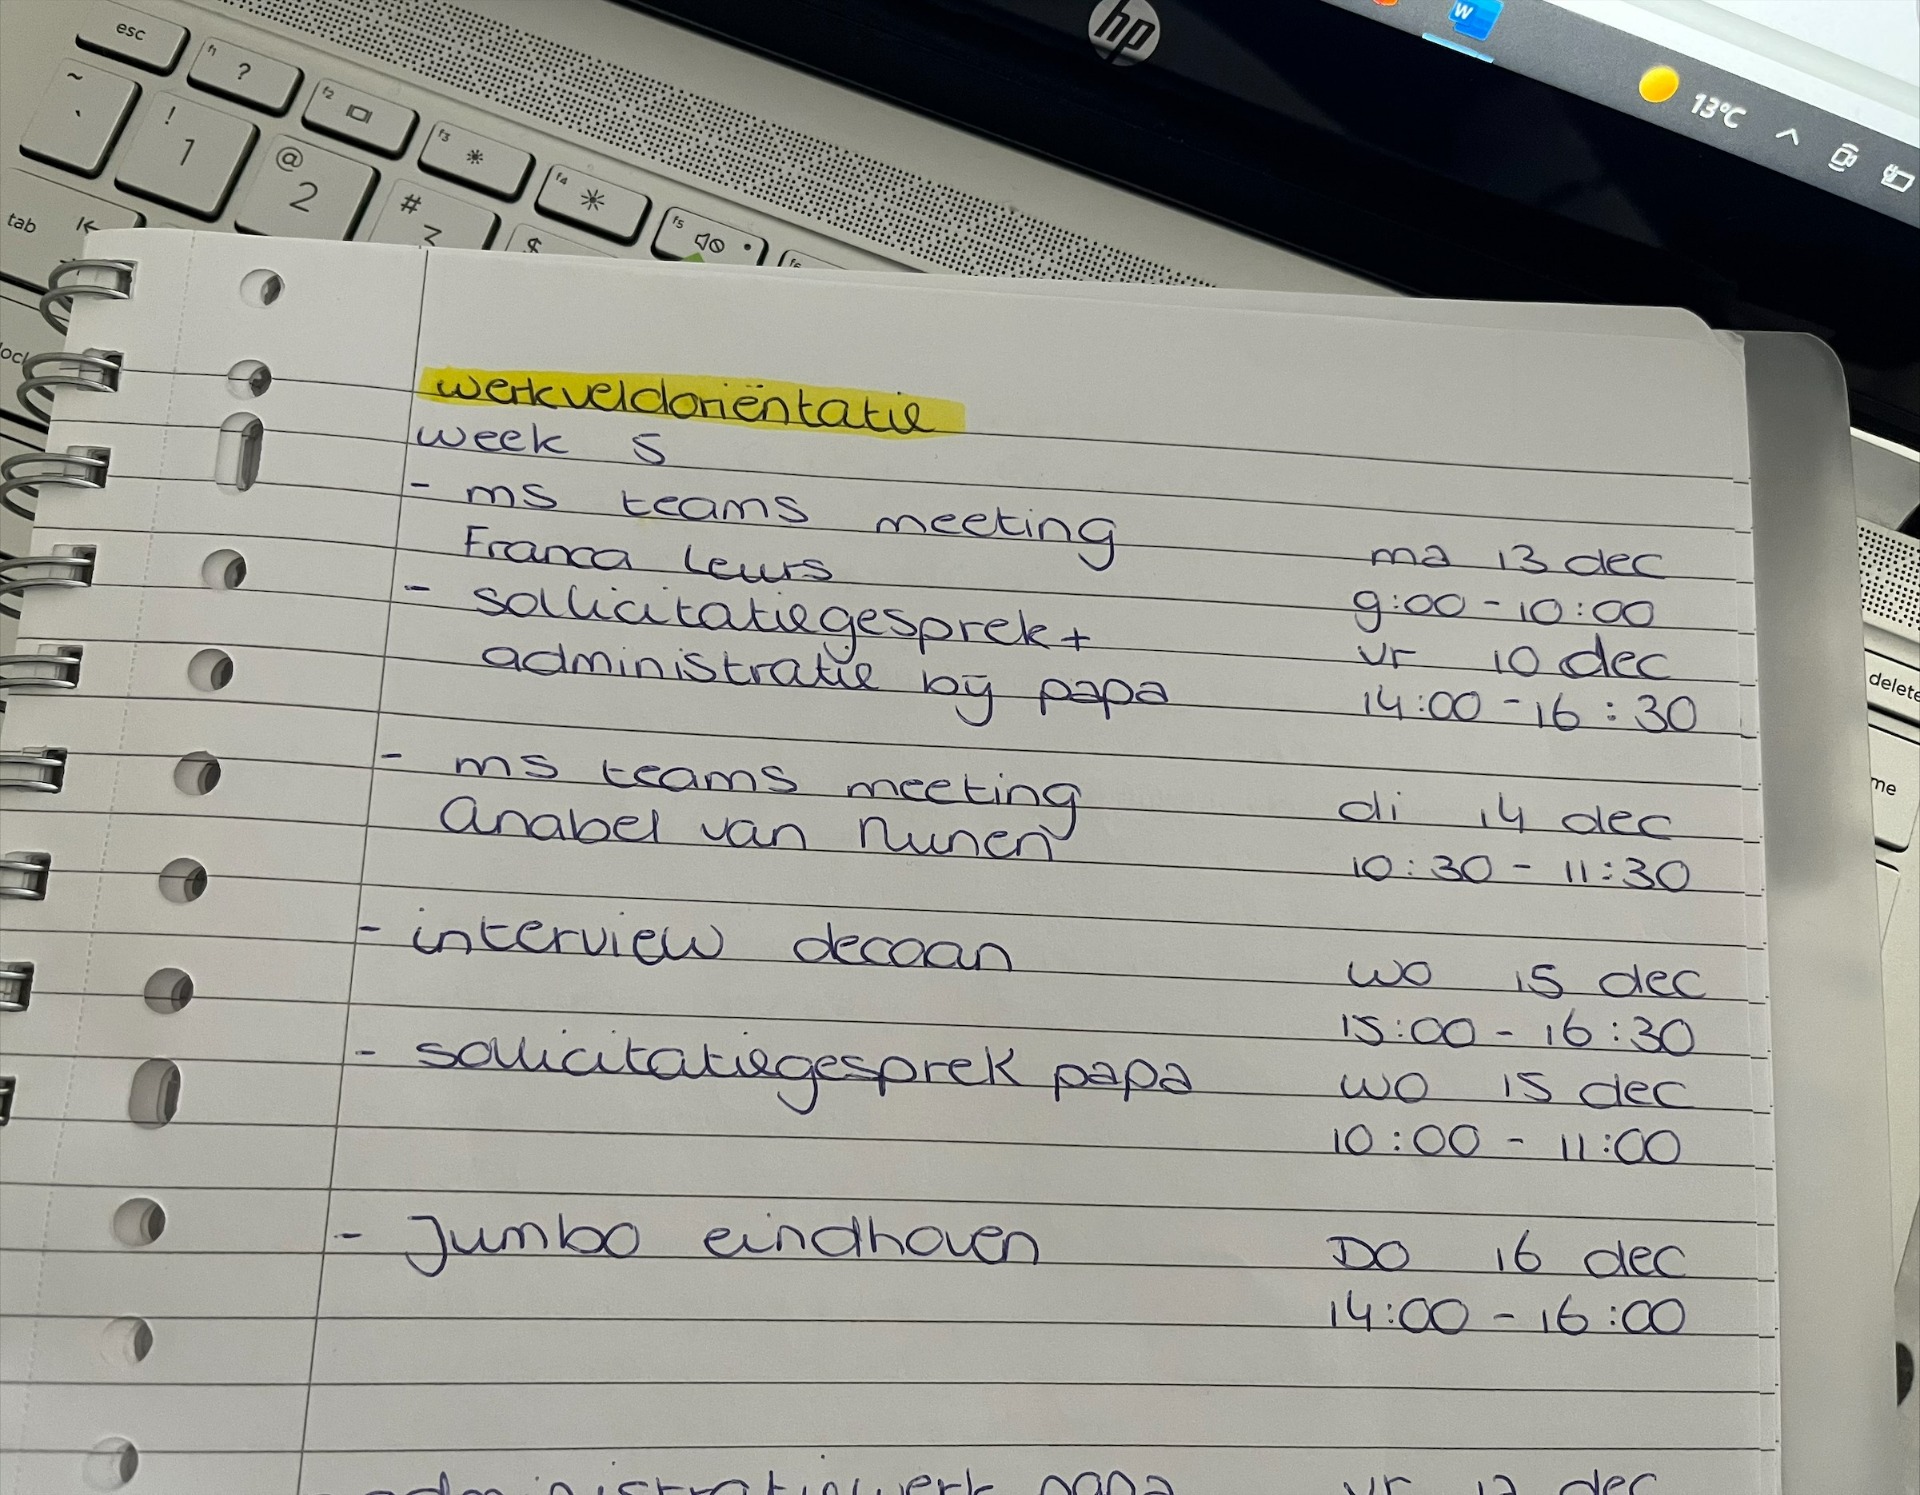 esc
f1 ?
f2
f3
f4
f5
f6
~ `
! 1
@ 2
# 3
$
tab
hp
W
13°C
delete
werkveldoriëntatie
week 5
- ms teams meeting
Franca Leurs
ma 13 dec
9:00 - 10:00
- sollicitatiegesprek +
administratie bij papa
vr 10 dec
14:00 - 16:30
- ms teams meeting
Anabel van Nunen
di 14 dec
10:30 - 11:30
- interview decaan
wo 15 dec
15:00 - 16:30
- sollicitatiegesprek papa
wo 15 dec
10:00 - 11:00
- Jumbo eindhoven
DO 16 dec
14:00 - 16:00
papa vr dec